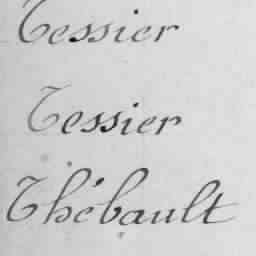 Tessier
Tessier
Thébault